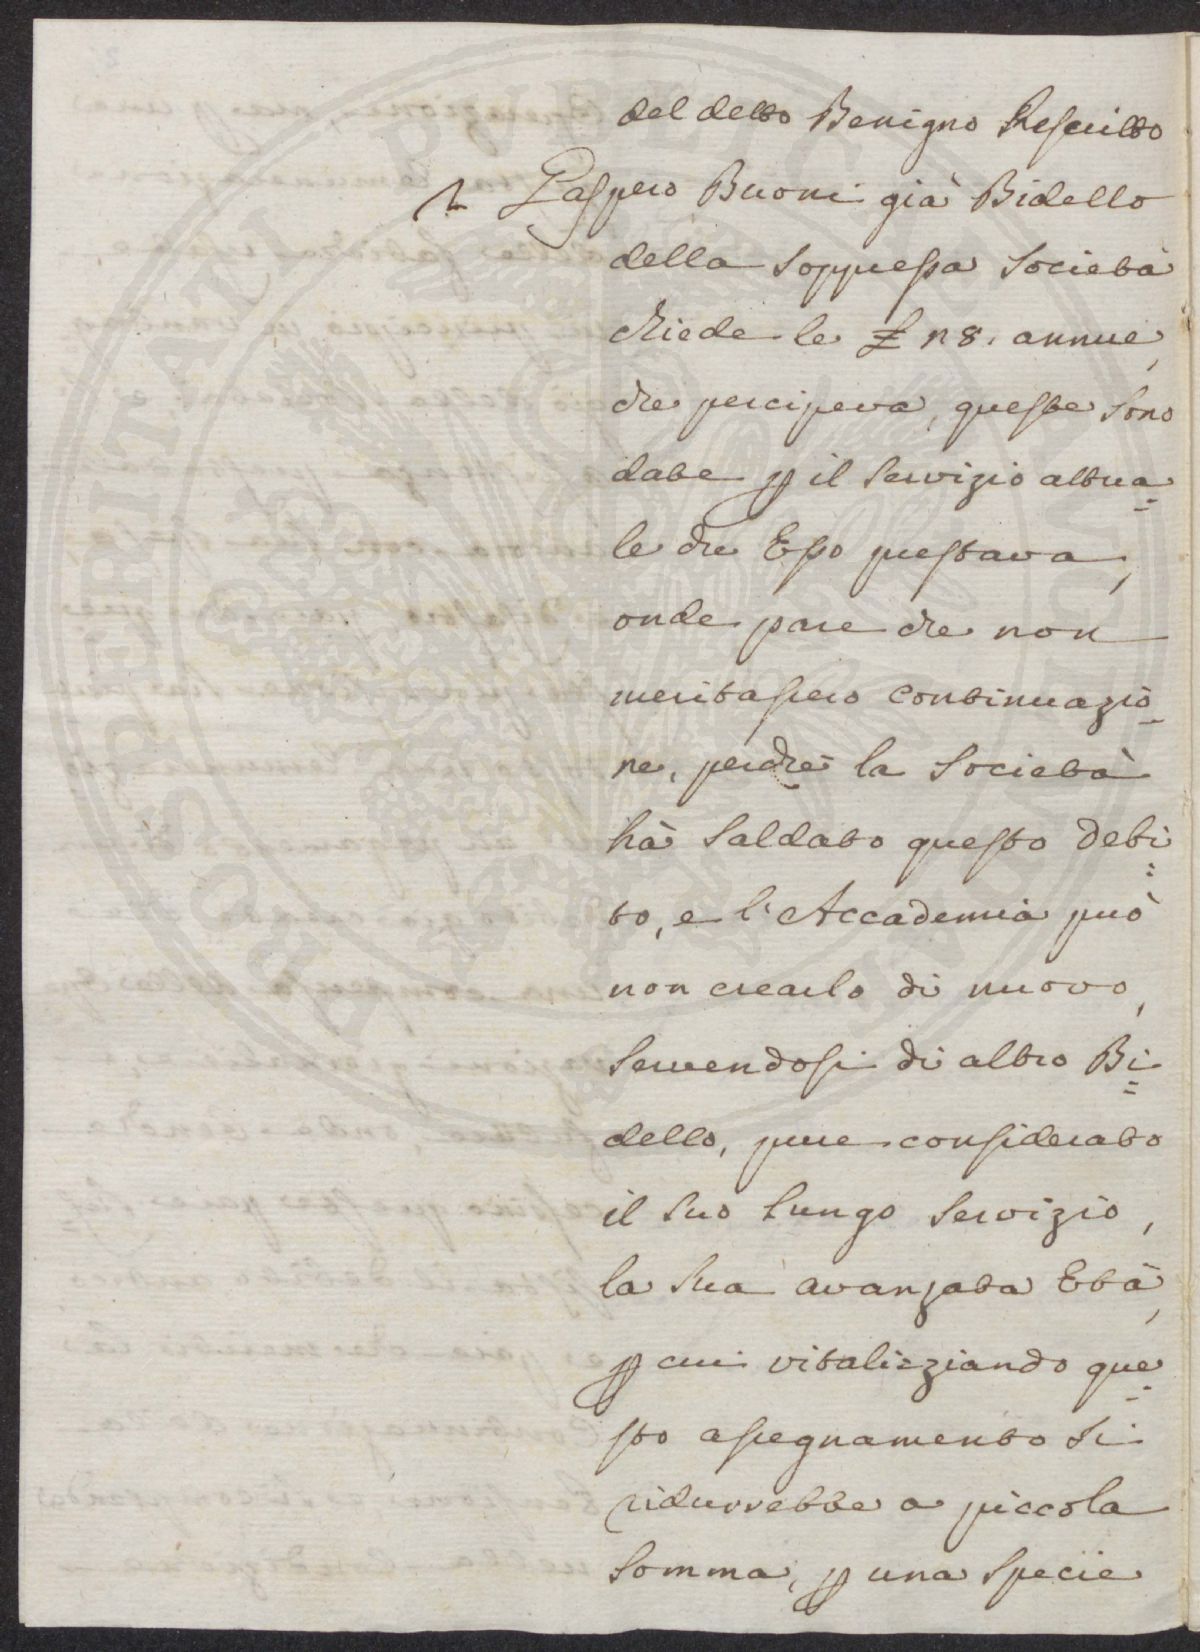 del detto Benigno Rescritto
Gaspero Buoni già Bidello
della Soppressa Società
chiede le £ 18. annue,
che percipeva, queste sono
date p il servizio attua=
le che Esso prestava,
onde pare che non
meritassero continuazio=
ne, perchè la Società
hà saldato questo debi=
to, e l'Accademia può
non crearlo di nuovo,
servendosi di altro Bi=
dello, pure considerato
il suo lungo servizio,
la sua avanzata Età,
p cui vitaliziando que=
sto assegnamento si
ridurrebbe a piccola
somma, p una specie